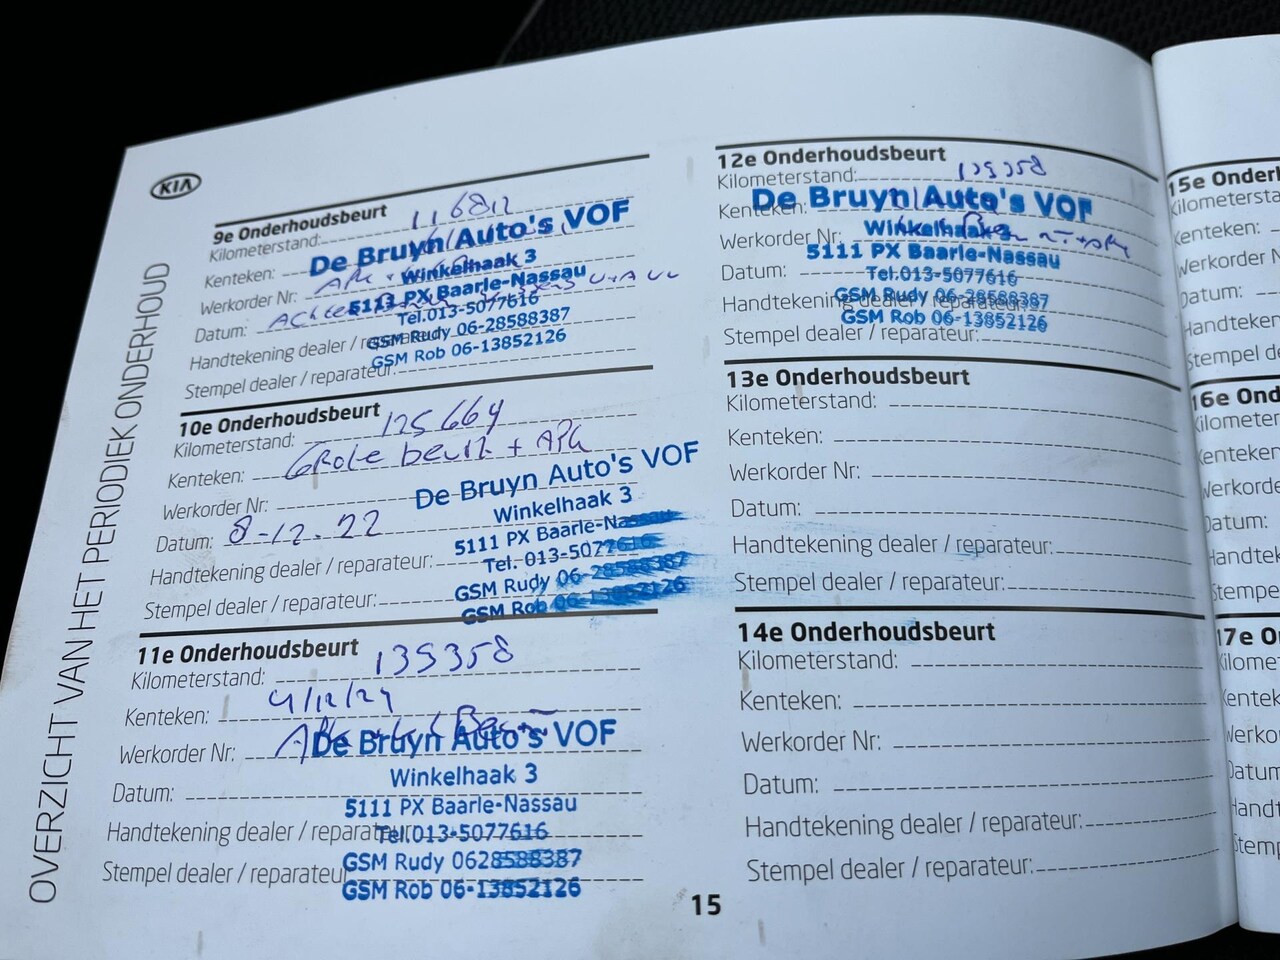 OVERZICHT VAN HET PERIODIEK ONDERHOUD
KIA
9e Onderhoudsbeurt
Kilometerstand:
Kenteken:
Werkorder Nr:
Datum:
Handtekening dealer / reparateur:
Stempel dealer / reparateur:
De Bruyn Auto's VOF
Winkelhaak 3
5113 PX Baarle-Nassau
Tel.013-5077616
GSM Rudy 06-28588387
GSM Rob 06-13852126
10e Onderhoudsbeurt
Kilometerstand: 125664
Kenteken: Grote beurt + APK
Werkorder Nr:
Datum: 8-12-22
Handtekening dealer / reparateur:
Stempel dealer / reparateur:
De Bruyn Auto's VOF
Winkelhaak 3
5111 PX Baarle-Nassau
Tel. 013-5077616
GSM Rudy 06-28588387
GSM Rob 06-13852126
11e Onderhoudsbeurt
Kilometerstand: 139358
Kenteken: 4/12/24
Werkorder Nr:
Datum:
Handtekening dealer / reparateur
Stempel dealer / reparateur
De Bruyn Auto's VOF
Winkelhaak 3
5111 PX Baarle-Nassau
Tel.013-5077616
GSM Rudy 0628588387
GSM Rob 06-13852126
12e Onderhoudsbeurt
Kilometerstand:
Kenteken:
Werkorder Nr:
Datum:
Handtekening dealer / reparateur:
Stempel dealer / reparateur:
De Bruyn Auto's VOF
Winkelhaak 3
5111 PX Baarle-Nassau
Tel.013-5077616
GSM Rudy 06-28588387
GSM Rob 06-13852126
13e Onderhoudsbeurt
Kilometerstand:
Kenteken:
Werkorder Nr:
Datum:
Handtekening dealer / reparateur:
Stempel dealer / reparateur:
14e Onderhoudsbeurt
Kilometerstand:
Kenteken:
Werkorder Nr:
Datum:
Handtekening dealer / reparateur:
Stempel dealer / reparateur:
15
15e
16e
17e